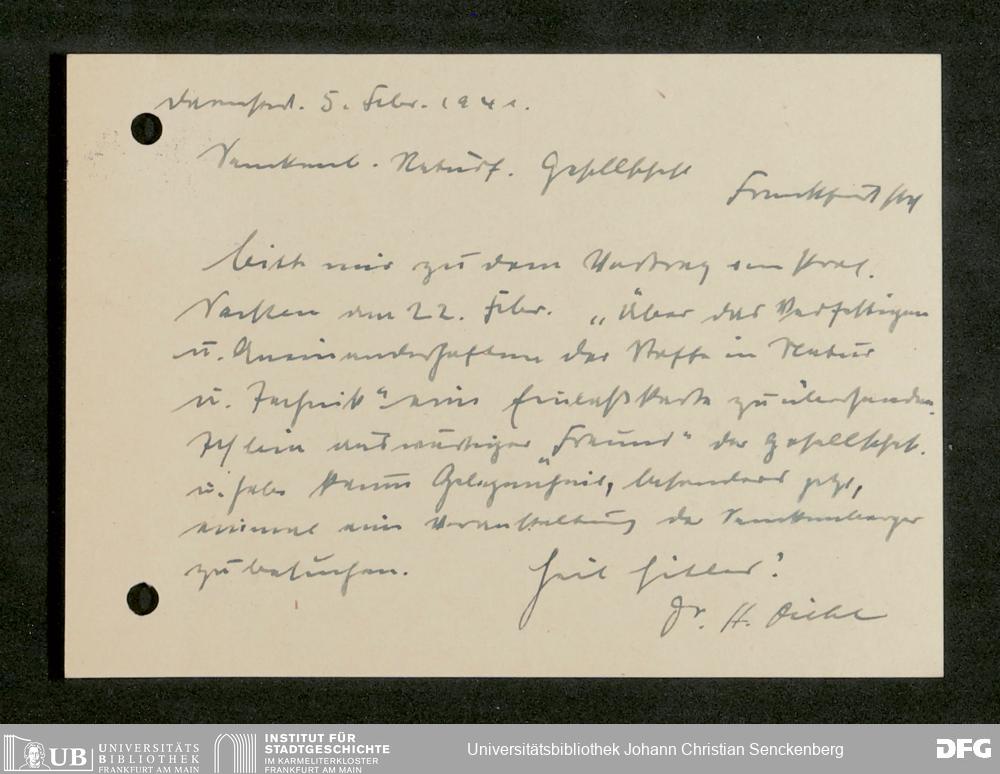 Darmstadt. 5. Febr. 1941.
Senckenb. Naturf. Gesellschaft
Frankfurt
bitte mir zu dem Vortrag von Prof.
am 22. Febr. „Über das Verfestigen
u. Aneinanderhaften der Stoffe in Natur
u. Technik" eine Einlaßkarte zu übersenden.
Ich bin auswärtiger „Freund" der Gesellschaft.
u. habe kaum Gelegenheit, besonders jetzt,
einmal eine Veranstaltung der Senckenberger
zu besuchen. Heil Hitler!
Dr. H. Diehl
UB UNIVERSITÄTS
BIBLIOTHEK
FRANKFURT AM MAIN
INSTITUT FÜR
STADTGESCHICHTE
IM KARMELITERKLOSTER
FRANKFURT AM MAIN
Universitätsbibliothek Johann Christian Senckenberg
DFG